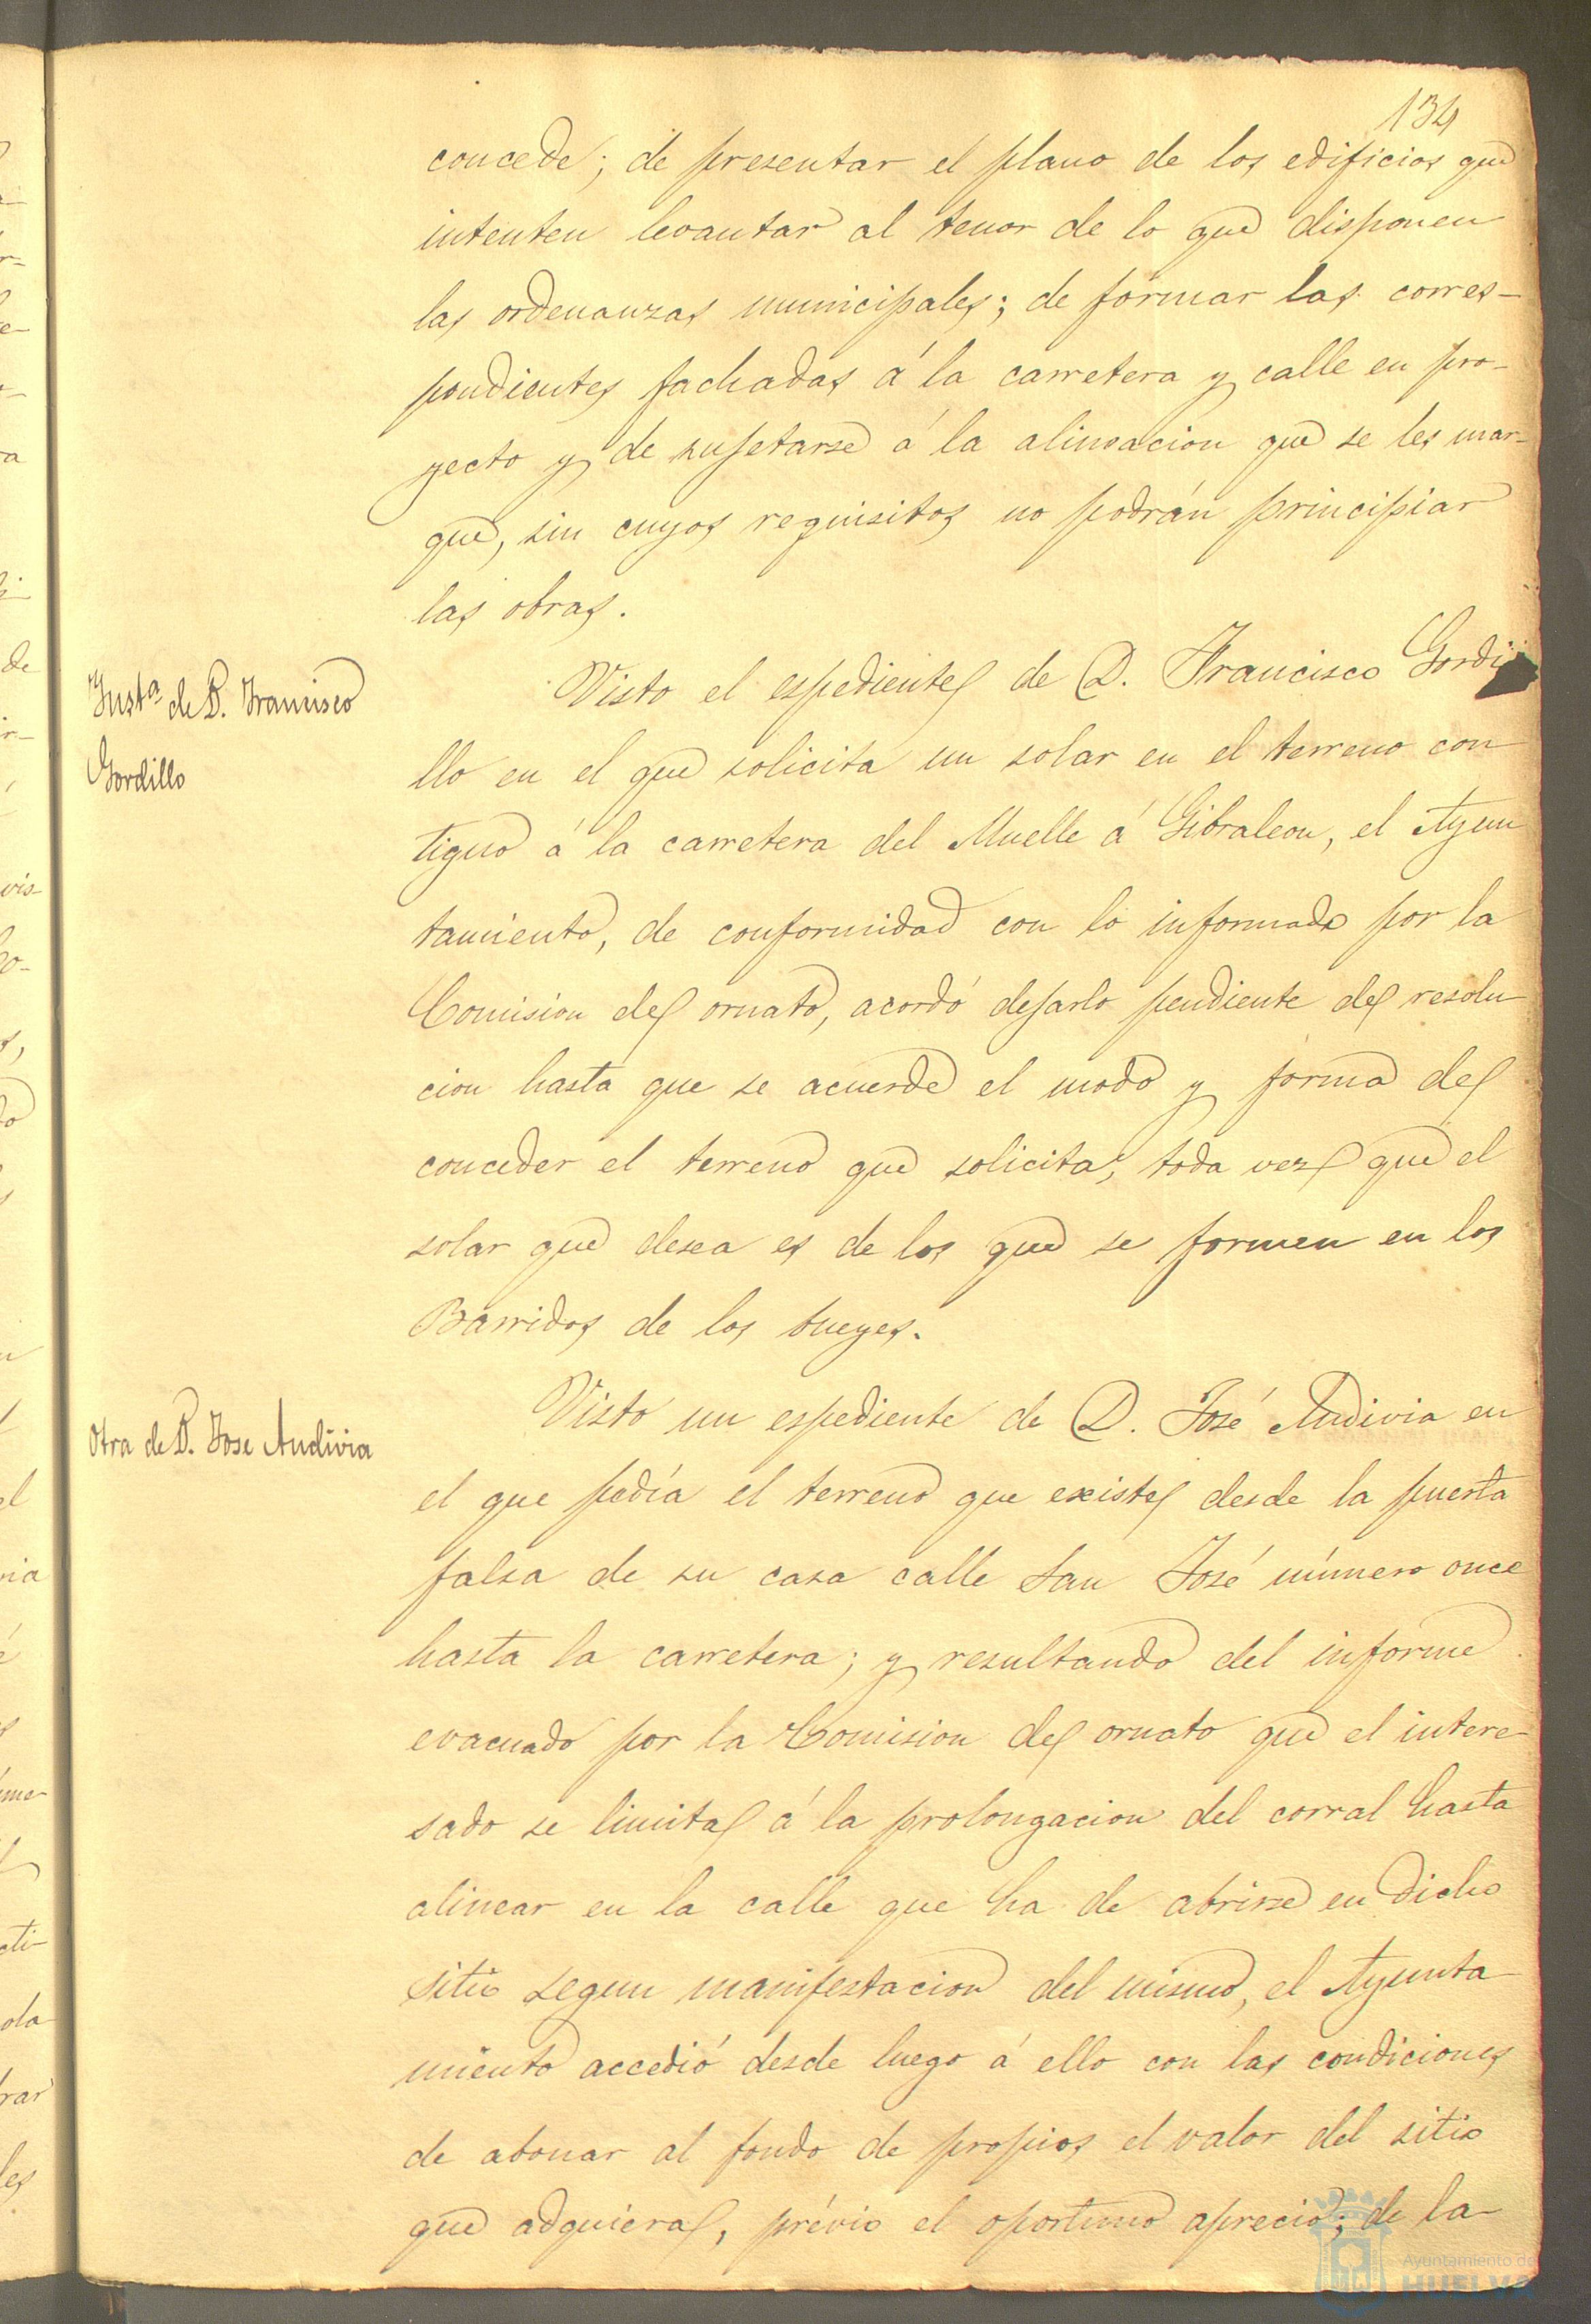 134
concede; de presentar el plano de los edificios que
intenten levantar al tenor de lo que disponen
las ordenanzas municipales; de formar las corres-
pondientes fachadas á la carretera y calle en pro-
yecto y de sujetarse á la alineacion que se les mar-
que, sin cuyos requisitos no podrán principiar
las obras.
Inst.ª de D. Francisco
Gordillo
Visto el espediente de D. Francisco Gordi
llo en el que solicita un solar en el terreno con
tiguo á la carretera del Muelle á Gibraleon, el Ayun
tamiento, de conformidad con lo informado por la
Comision de ornato, acordó dejarlo pendiente de resolu
cion hasta que se acuerde el modo y forma de
conceder el terreno que solicita, toda vez que el
solar que desea es de los que se formen en los
Barridos de los bueyes.
Otra de D. Jose Andivia
Visto un espediente de D. José Andivia en
el que pedía el terreno que existe desde la puerta
falsa de su casa calle San José número once
hasta la carretera; y resultando del informe
evacuado por la Comision de ornato que el intere-
sado se limita á la prolongacion del corral hasta
alinear en la calle que ha de abrirse en dicho
sitio segun manifestacion del mismo, el Ayunta
miento accedió desde luego á ello con las condiciones
de abonar al fondo de propios el valor del sitio
que adquiera, prévio el oportuno aprecio; de la-
Ayuntamiento de
HUELVA